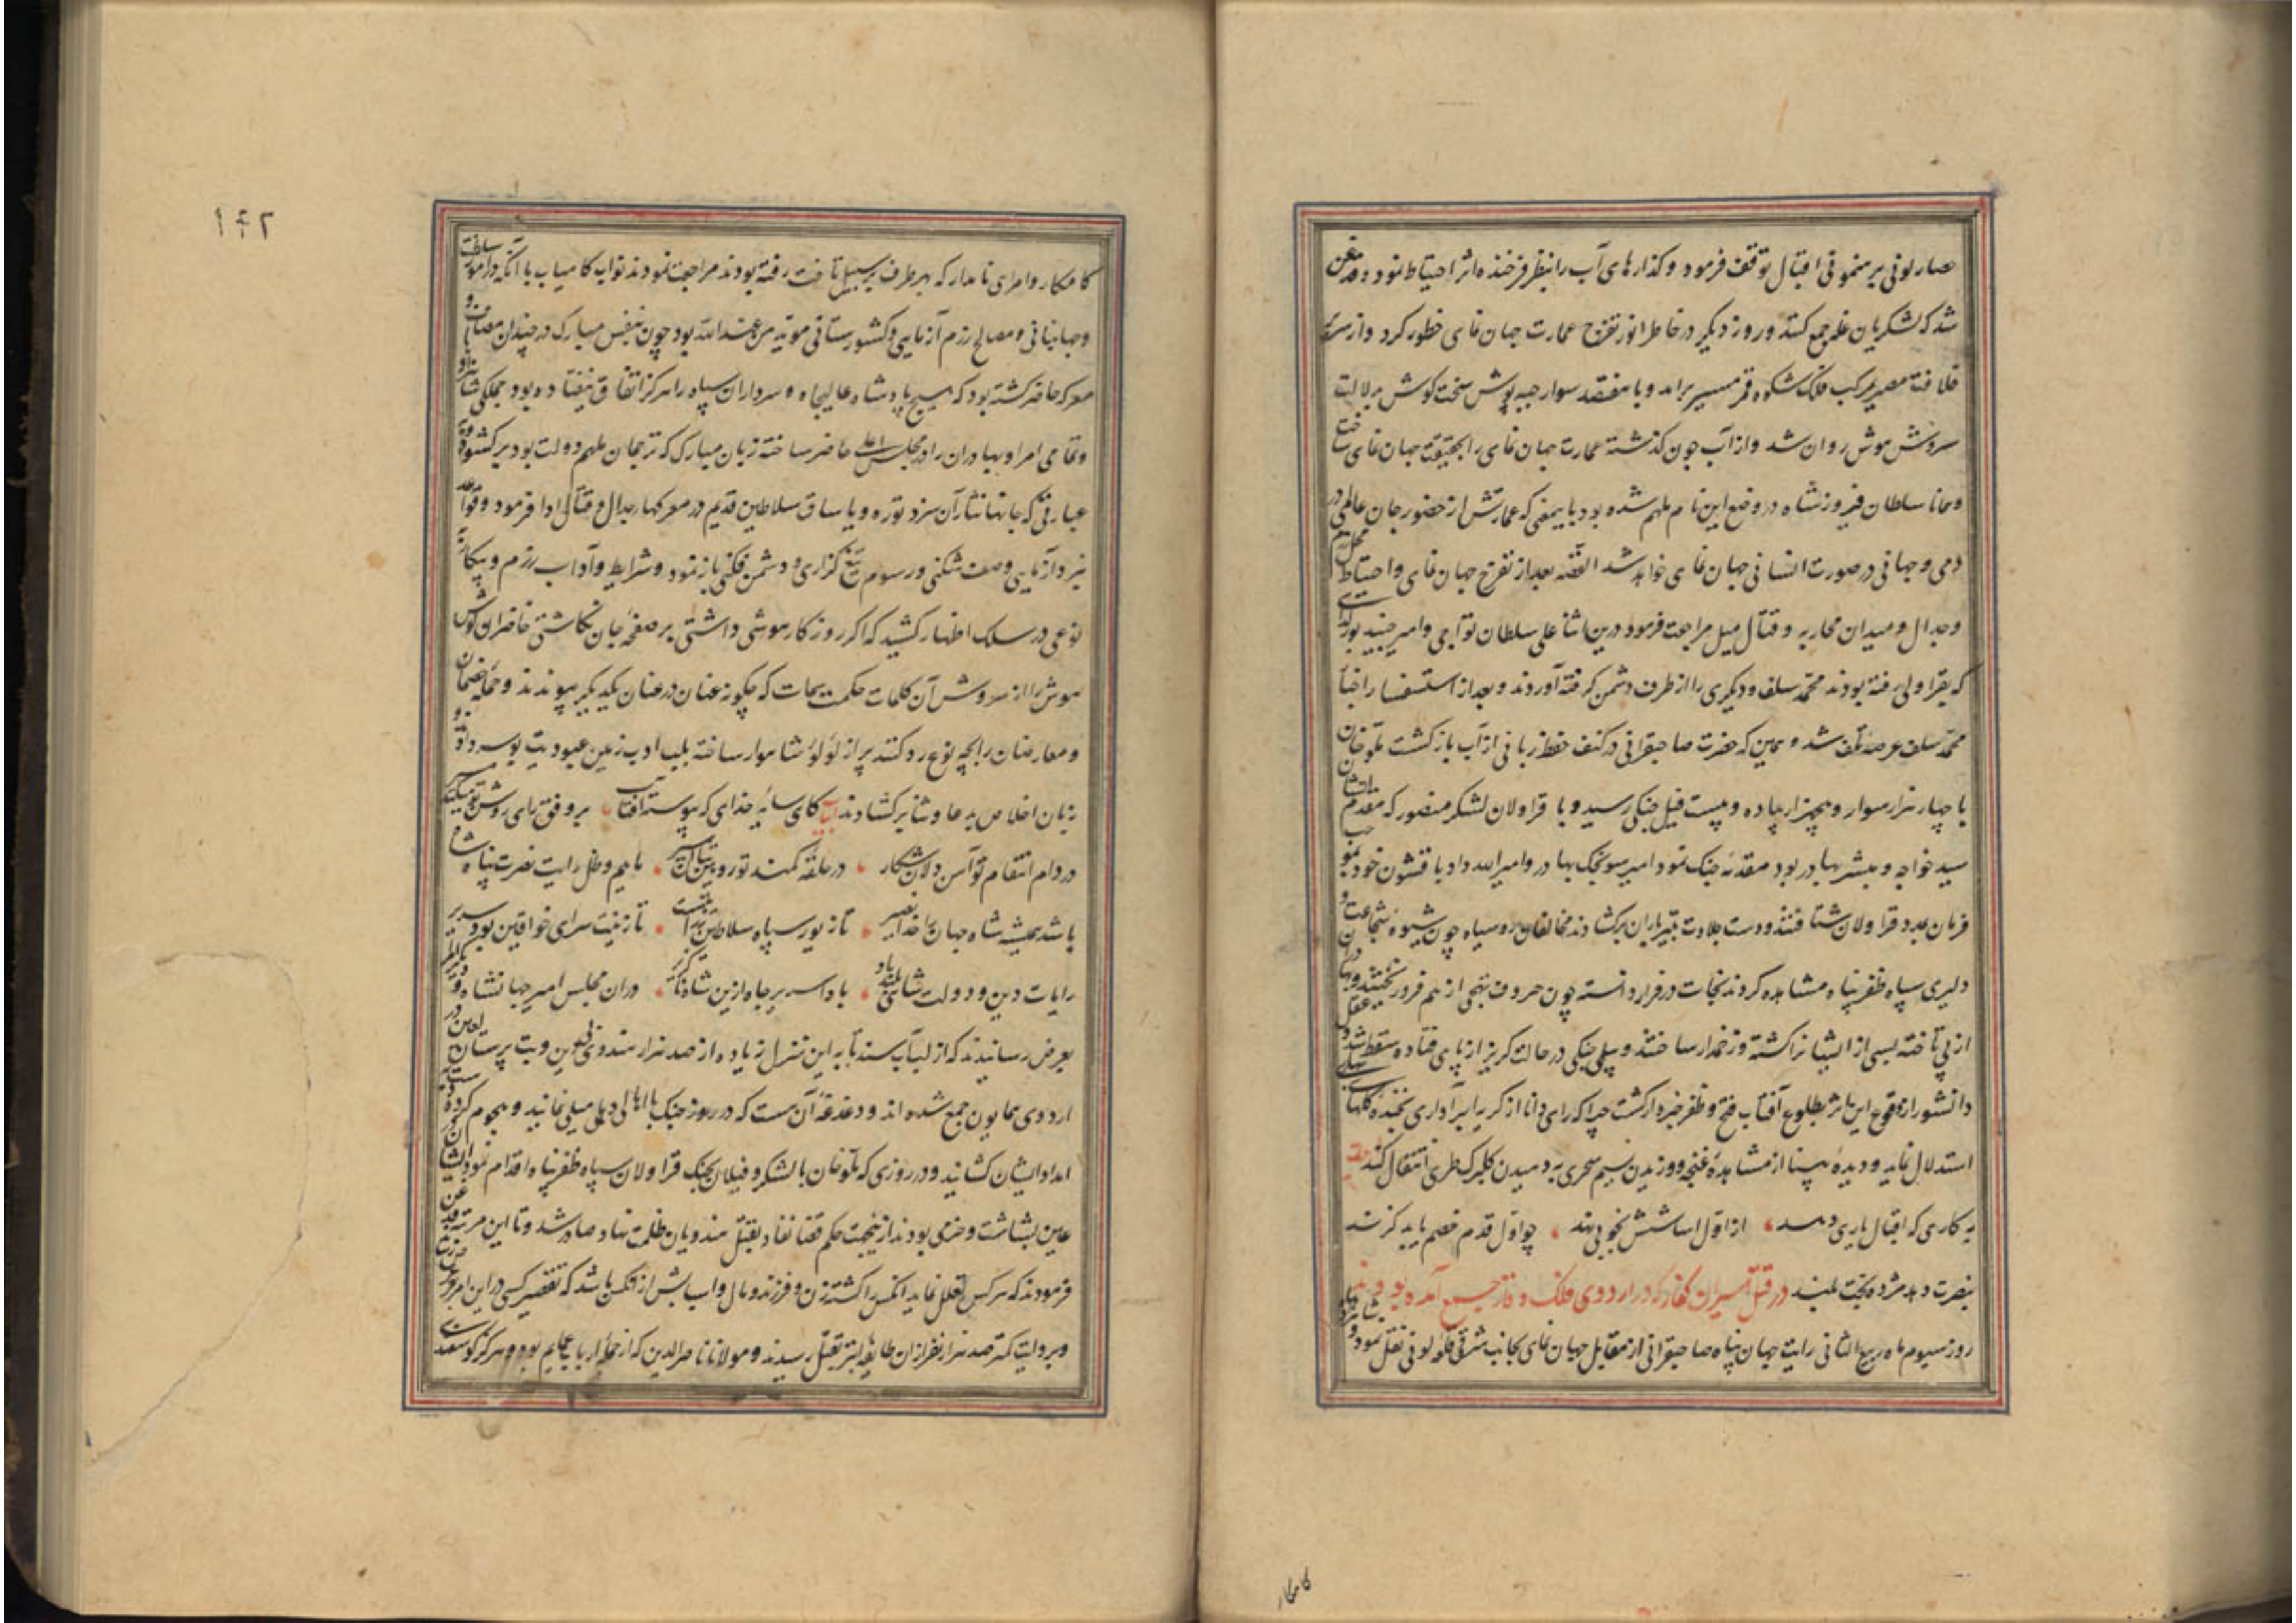 حصار لونی برهنمونی اقبال توقف فرمود و کذارهای آب را بنظر فرخنده اثر احتیاط نمود و قدغن
شد که لشکریان غله جمع کنند و روز دیکر در خاطر انور تفرج عمارت جهان نمای خطور کرد و از سریر
خلافت مصیر بر مرکب فلک شکوه قمر مسیر برامد و با هفتصد سوار جبه پوش سخت کوش بدلالت
سروش هوش روان شد و از آب جون کذشته عمارت جهان نمای را بحقیقت جهان نمای ساخت
و همانا سلطان فیروز شاه در وضع این نام ملهم شده بود باین معنی که عمارتش از حضور جان عالمی در
دمی و جهانی در صورت انسانی جهان نمای خواهد شد القصه بعد از تفرج جهان نمای و احتیاط محل رزم
و جدال و میدان محاربه و قتال میل مراجعت فرمود درین اثنا علی سلطان تواجی و امیر جنید بورلدای
که بقراولی رفته بودند محمد سلف و دیکری را از طرف دشمن کرفته آوردند و بعد از استفسار اخبار
محمد سلف عرصه تلف شد و همین که حضرت صاحبقرانی در کنف حفظ ربانی از آب بازکشت ملوخان
با چهار هزار سوار و پنجهزار پیاده و بیست فیل جنکی رسید و با قراولان لشکر منصور که مقدم ایشان
سید خواجه و مبشر بهادر بود مقدمه جنک نمود امیر سونجک بهادر و امیر الله داد با قشون خود بموجب
فرمان بمدد قراولان شتافتند و دست جلادت بتیرباران برکشادند مخالفان روسیاه چون شیوه شجاعت و
دلیری سپاه ظفر پناه مشاهده کردند نجات در فرار دانسته چون حروف تهجی از هم فرو ریختند و بهادران
از پی تاخته بسی از ایشانرا کشته و زخمدار ساختند و پیلی جنکی در حالت کریز از پای فتاده سقط شد و عقل
دانشور از وقوع این اثر بطلوع آفتاب فتح و ظفر خبردار کشت چرا که رای دانا از کریه ابر آذاری بخنده کلهای بهاری
استدلال نماید و دیده بینا از مشاهده غنچه و وزیدن نسیم سحری به دمیدن کلبرک طری انتقال کند بیت
به کاری که اقبال یاری دهد از اول اساسش بخوبی نهد چو اول قدم خصم یابد کزند
بنصرت دهد مژده بخت بلند در قتل اسیران کفار که در اردوی فلک وقار جمع آمده بودند
روز سیوم ماه ربیع الثانی رایت جهان پناه صاحبقرانی از مقابل جهان نمای بجانب شرقی قلعه لونی نقل نمود و شاهزادهای
کامکار
۱۴۲
کامکار و امرای نامدار که بهر طرف بر سبیل تاخت رفته بودند مراجعت نمودند نواب کامیاب با آنکه در امور سلطنت
و جهانبانی و مصالح رزم آزمایی و کشورستانی موید من عند الله بود چون بنفس مبارک در چندان مصاف و
معرکه حاضر کشته بود که هیچ پادشاه عالیجاه و سرداران سپاه را هرکز اتفاق نیفتاده بود جملکی شاهزادها
و تمامی امرا و بهادران را در مجلس اعلی حاضر ساخته زبان مبارک که ترجمان ملهم دولت بود برکشود و به
عبارتی که جانها نثار آن سزد توره و یاساق سلاطین قدیم در معرکهاء جدال و قتال ادا فرمود و قواعد
نبرد آزمایی و صف شکنی و رسوم تیغ کزاری و دشمن فکنی باز نمود و شرایط و آداب رزم و پیکار به
نوعی در سلک اظهار کشید که اکر روزکار هوشی داشتی بر صفحه جان نکاشتی حاضران کوش
هوش را از سروش آن کلمات حکمت سمات که چکونه عنان در عنان یکدیکر پیوندند و حمله خصمان
و معارضان را بچه نوع رد کنند پر از لولوء شاهوار ساخته بلب ادب زمین عبودیت بوسه داده و
زبان اخلاص بدعا و ثنا برکشادند ابیات کای سایه خدای که پیوسته آفتاب بر وفق رای روشن تو میکند مسیر
در دام انتقام تو آهن دلان شکار در حلقه کمند تو رویین تنان اسیر تا بیم و ظل رایت نصرت پناه شاه
باشد همیشه شاه جهان را خدا نصیر تا زیور سپاه سلاطین بود تخت تا زینت سرای خواقین بود سریر
رایات دین و دولت شاهی بلند باد بادا سریر جاه ازین شاه ناکزیر دران مجلس امیر جهانشاه و دیکر امرا
بعرض رسانیدند که از لب آب سند تا به این منزل زیاده از صد هزار هندوی بی دین و بت پرستان لعین در
اردوی همایون جمع شده اند و دغدغه آن هست که در روز جنک با اهالی دهلی میلی نمایند و هجوم کرده
امداد ایشان کنند و در روزی که ملوخان با لشکر و فیلان بجنک قراولان سپاه ظفر پناه اقدام نمود ایشان
عاین بشاشت و خرمی بودند ازینجهت حکم قضا نفاذ بقتل هندویان ظلمت نهاد صادر شد و تا این مرتبه قدغن
فرمودند که هرکس تعلل نماید انکس را کشته زن و فرزند و مال و اسبابش از آنکس باشد که تقصیر کسی در این امر
و بروایت کمتر صد هزار نفر ازان طایفه ابتر بقتل رسیدند و مولانا ناصر الدین که از جمله ارباب عمایم بود و هرکز کوسفند